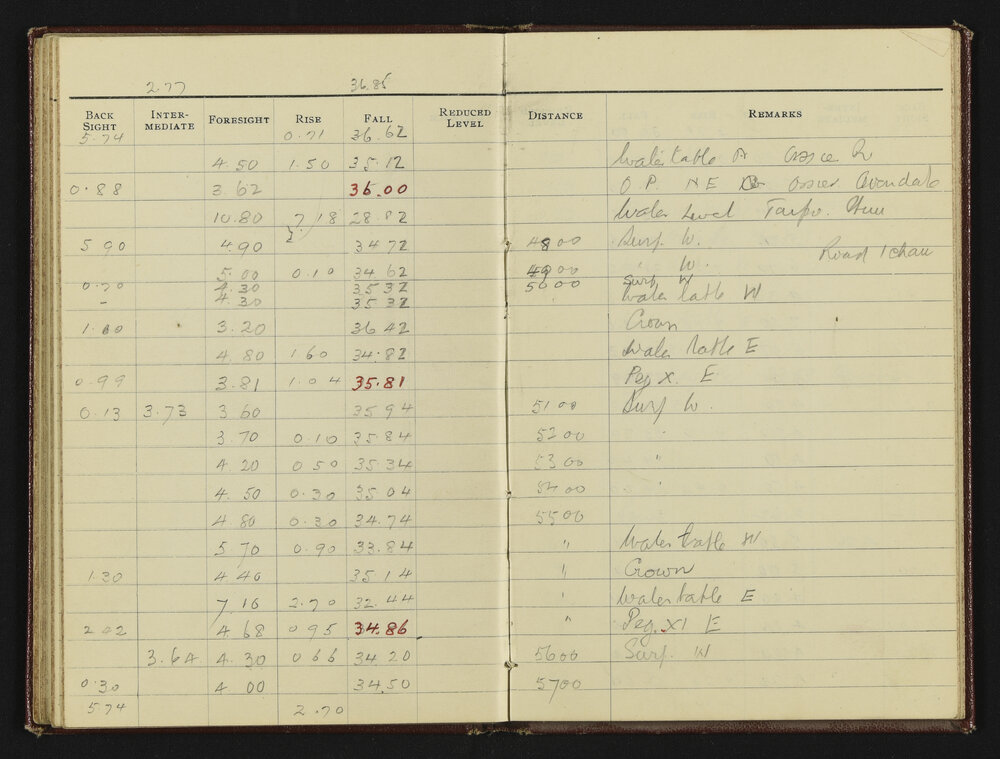 2.77 36.85
BACK SIGHT INTER-MEDIATE FORESIGHT RISE FALL REDUCED LEVEL DISTANCE REMARKS
5.74 0.71 36.62
4.50 1.50 35.12 Water table
0.88 3.62 36.00 O.P. N E Avondale
10.80 7 18 28.82 Water Level
5 90 4.90 34 72 4800 Surf. W.
5.00 0.10 34 62 4900 " W. Road
0.70 4.30 35 32 5000 Surf W
- 4.30 35 32 Water table W
1.10 3.20 36 42 Crown
4.80 1 60 34.82 Water table E
0.99 3.81 1.04 35.81 Peg X. E
0.13 3.73 3 60 35 94 5100 Surf W.
3.70 0.10 35 84 5200 "
4.20 0 50 35 34 5300 "
4.50 0.30 35 04 5400 "
4 80 0.30 34.74 5500
5 70 0.90 33.84 " Water table W
1.30 4 40 35 14 " Crown
7 16 2.70 32.44 " Water table E
2.02 4.68 0 95 34.86 " Peg. XI E
3.64 4.30 0 66 34 20 5600 Surf. W
0.30 4 00 34.50 5700
5.74 2.70